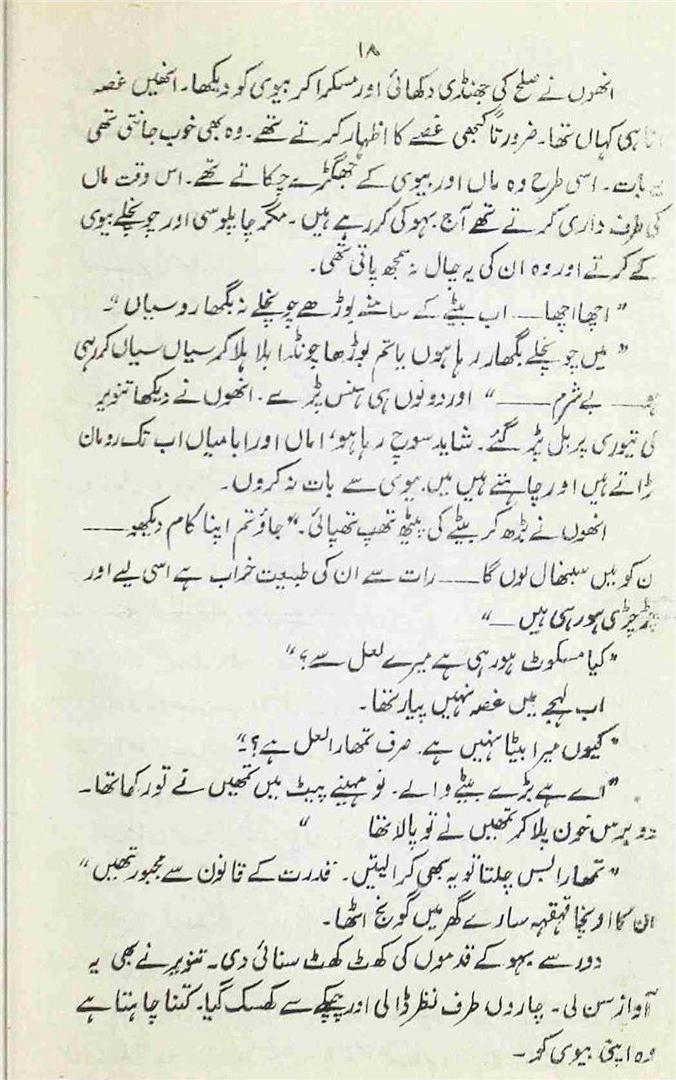 ۱۸
انھوں نے صلح کی جھنڈی دکھائی اور مسکرا کر بیوی کو دیکھا۔ انھیں غصہ
ہی کہاں تھا۔ ضرورتاً کبھی غصے کا اظہار کرتے تھے۔ وہ بھی خوب جانتی تھی
یہ بات۔ اسی طرح وہ ماں اور بیوی کے جھگڑے چکاتے تھے۔ اس وقت ماں
کی طرف داری کرتے تھے آج بہو کی کر رہے ہیں۔ مگر چاپلوسی اور چونچلے بیوی
کے کرتے اور وہ ان کی یہ چال نہ سمجھ پاتی تھی۔
”اچھا اچھا — اب بیٹے کے سامنے بوڑھے چونچلے نہ بگھارو سیاں“۔
”میں چونچلے بگھار رہا ہوں یا تم بوڑھا چونڈا ہلا ہلا کر سیاں سیاں کر رہی
ہو — بے شرم —“ اور دونوں ہی ہنس پڑے۔ انھوں نے دیکھا تنویر
کی تیوری پر بل پڑ گئے۔ شاید سوچ رہا ہو، اماں اور ابا میاں اب تک رومان
لڑاتے ہیں اور چاہتے ہیں میں بیوی سے بات نہ کروں۔
انھوں نے بڑھ کر بیٹے کی پیٹھ تھپ تھپائی۔ ”جاؤ تم اپنا کام دیکھو —
ان کو میں سنبھال لوں گا — رات سے ان کی طبیعت خراب ہے اسی لیے اور
چڑچڑی ہو رہی ہیں —“
”کیا مسکوٹ ہو رہی ہے میرے لعل سے؟“
اب لہجے میں غصہ نہیں پیار تھا۔
”کیوں میرا بیٹا نہیں ہے۔ صرف تمھارا لعل ہے؟“
”اے ہے بڑے بیٹے والے۔ نو مہینے پیٹ میں تمھیں نے تو رکھا تھا۔
دو برس خون پلا کر تمھیں نے تو پالا تھا“
”تمھارا بس چلتا تو یہ بھی کرا لیتیں۔ قدرت کے قانون سے مجبور تھیں“
ان کا اونچا قہقہہ سارے گھر میں گونج اٹھا۔
دور سے بہو کے قدموں کی کھٹ کھٹ سنائی دی۔ تنویر نے بھی یہ
آواز سن لی۔ چاروں طرف نظر ڈالی اور چپکے سے کھسک گیا۔ کتنا چاہتا ہے
وہ اپنی بیوی کو۔